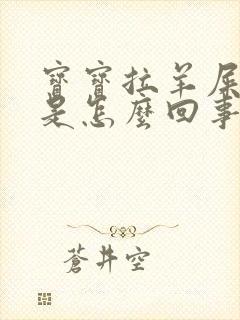 寶寶拉羊屎
是怎麼回事
蒼井空